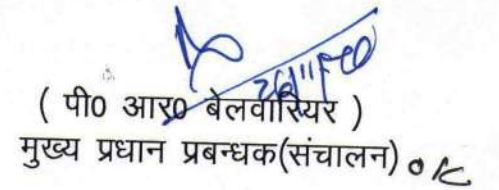 ( पी0 आर0 बेलवारियर )
मुख्य प्रधान प्रबन्धक(संचालन)